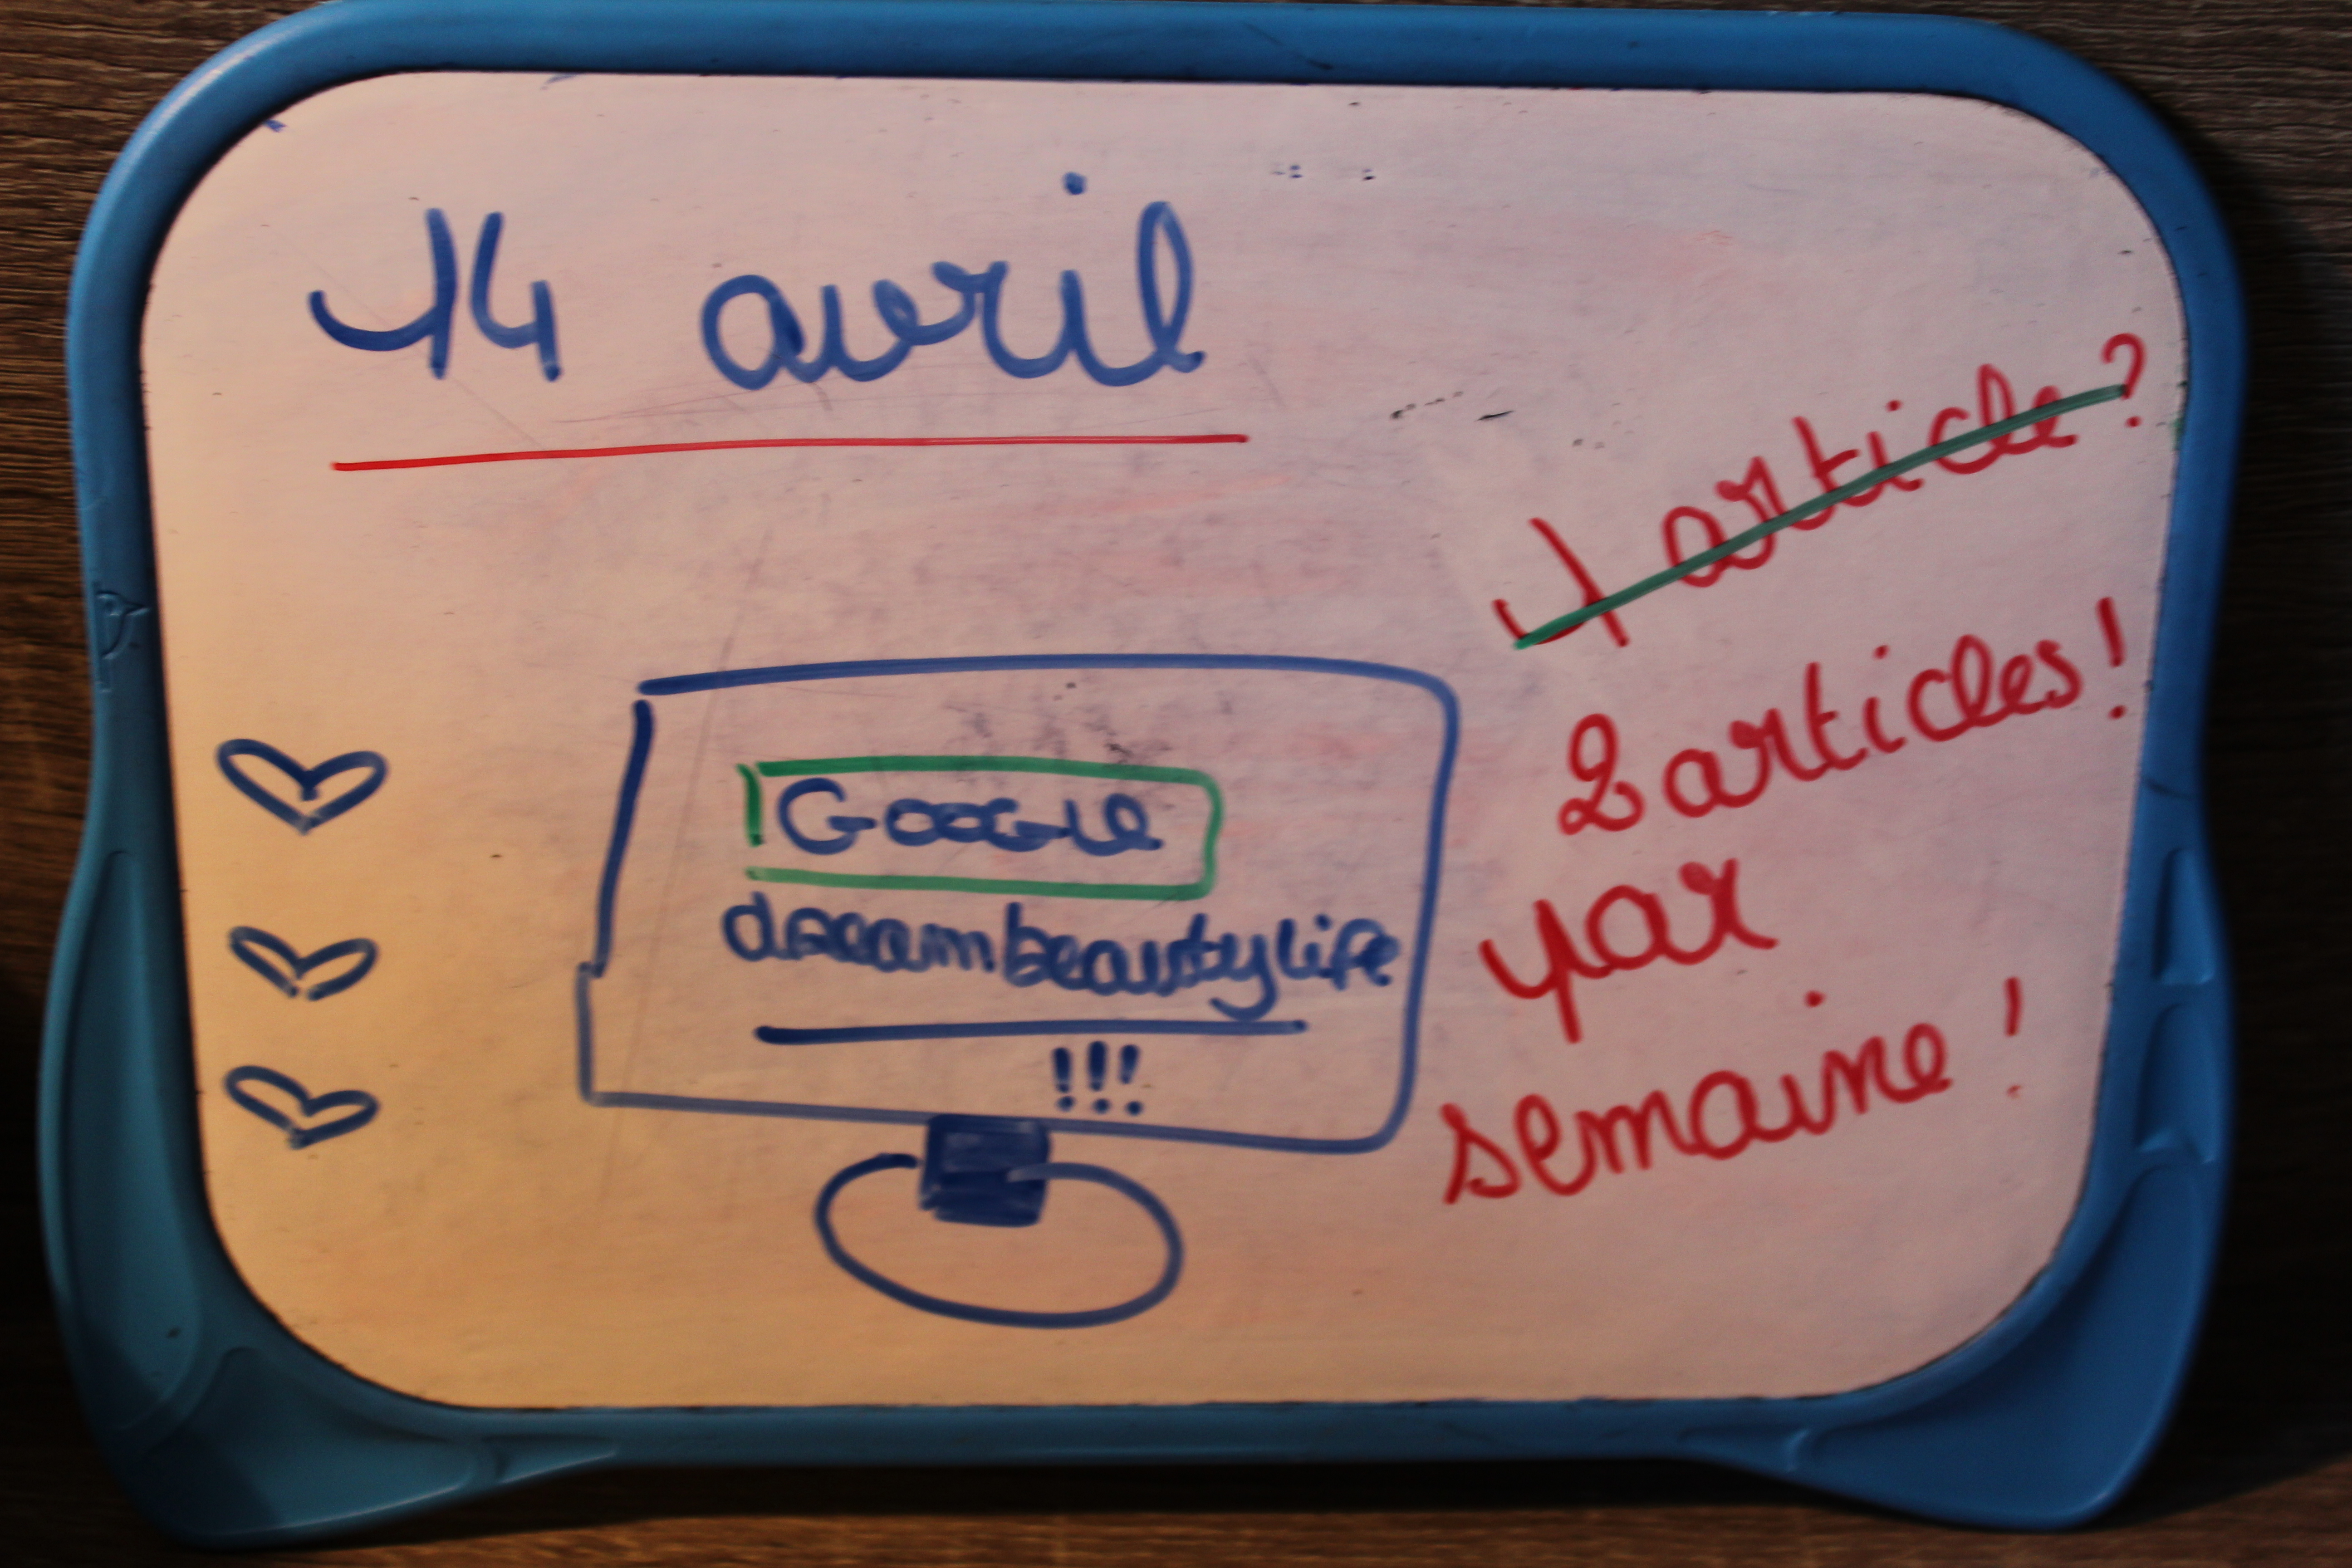 14 avril
1 article ?
2 articles !
par
semaine !
Google
dreambeautylife
!!!